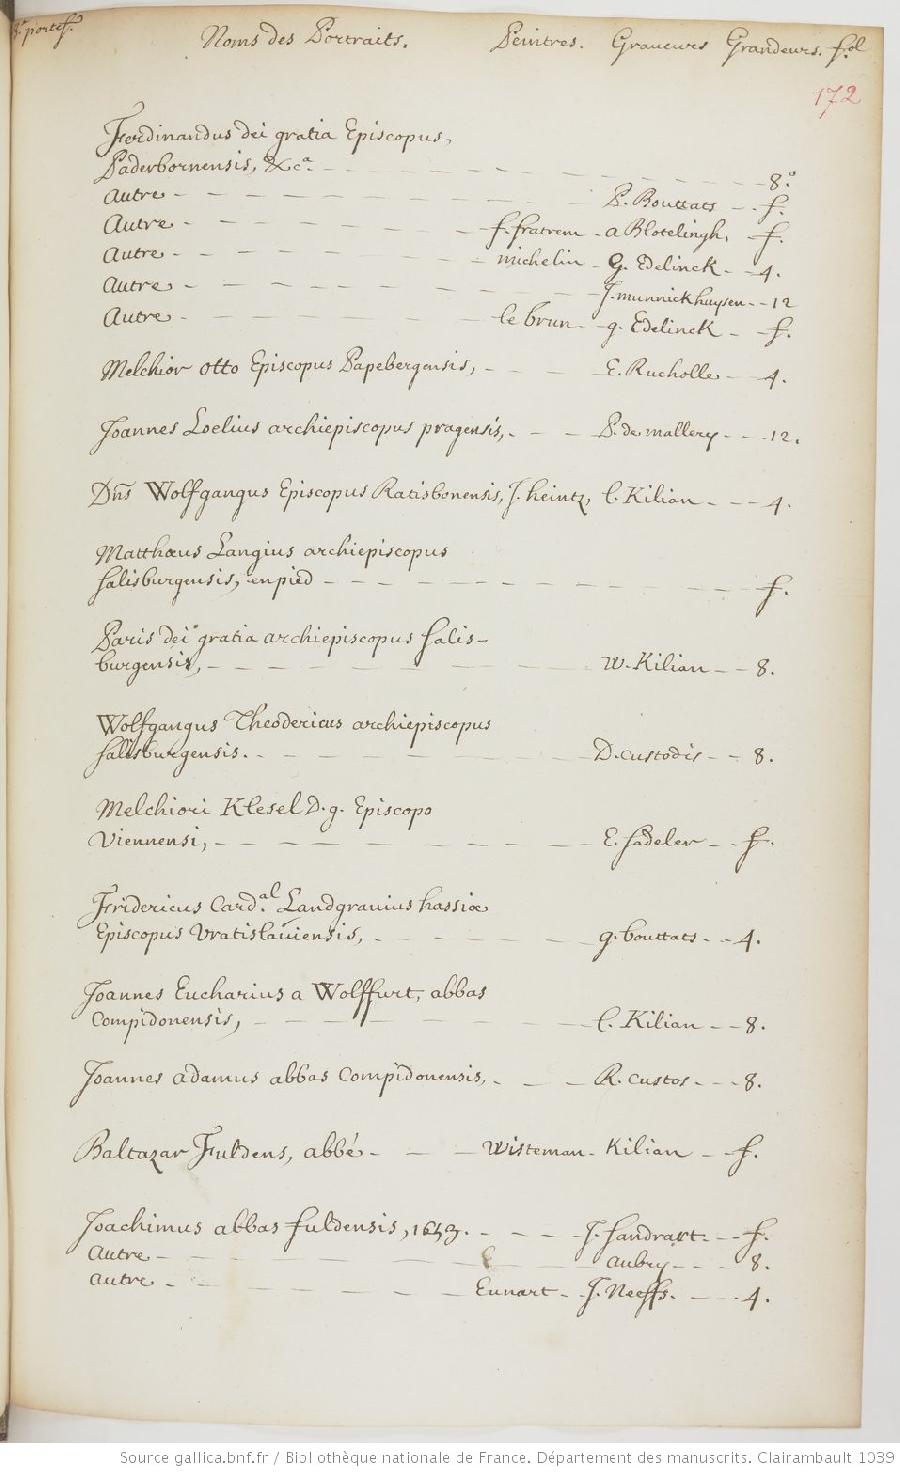 8.e portef.
Noms des Portraits. Peintres. Graveurs Grandeurs. fol
172
Ferdinandus dei gratia Episcopus,
Paderbornensis, &c.a - - - 8.o
Autre - - - P. Bouttats - - f.
Autre - - - f. fratrem - a Blotelingh, f.
Autre - - - michelin - G. Edelinck - - 4.
Autre - - - J. munnickhuysen - - 12
Autre - - - le brun - g. Edelinck - f.
Melchior otto Episcopus Papebergensis, - - - E. Rucholle - - 4.
Joannes Loelius archiepiscopus pragensis, - - - P. de mallery - - - 12.
Dñs Wolfgangus Episcopus Ratisbonensis, J. heintz, l. Kilian - - - 4.
Matthæus Langius archiepiscopus
salisburgensis, en pied - - - f.
Paris dei gratia archiepiscopus salis-
burgensis, - - - W. Kilian - - 8.
Wolfgangus Theodericus archiepiscopus
salisburgensis. - - - D. custodis - - 8.
Melchiori Klesel D. g. Episcopo
Viennensi, - - - E. sadeler - - f.
Fridericus Card.al Landgravius hassiæ
Episcopus Vratislaviensis, - - - g. bouttats - - 4.
Joannes Eucharius a Wolffurt, abbas
Compidonensis, - - - l. Kilian - - 8.
Joannes adamus abbas Compidonensis, - - - R. custos - - - 8.
Baltazar Fuldens, abbé - - - Wisteman - Kilian - f.
Joachimus abbas fuldensis, 1653. - - - J. sandrart - - f.
autre - - - aubry - - - 8.
autre - - - Eunart - J. Neeffs. - - - 4.
Source gallica.bnf.fr / Bibliothèque nationale de France. Département des manuscrits. Clairambault 1039